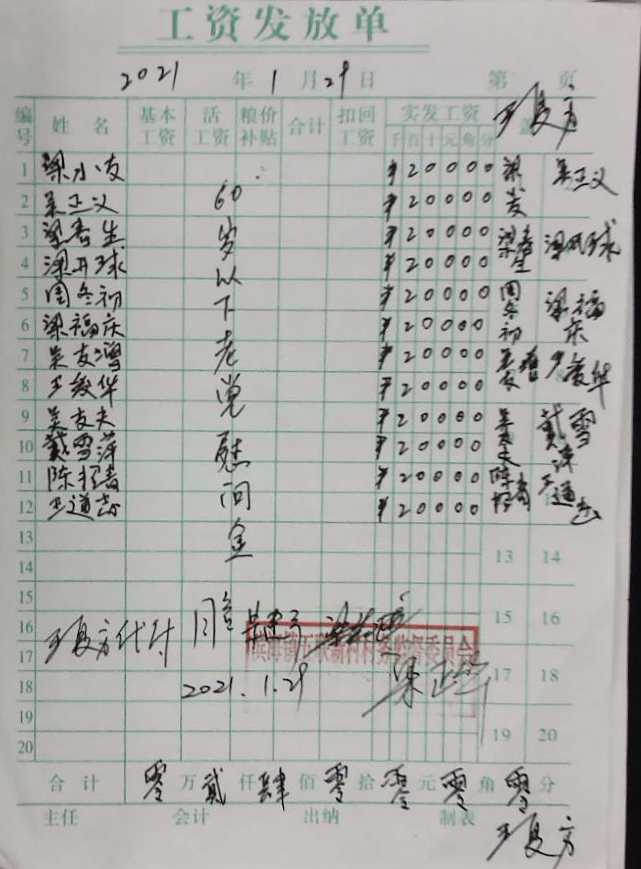 工资发放单
2021 年 1 月 29 日 第 页
编号 姓名 基本工资 活工资 粮价补贴 合计 扣回工资 实发工资 盖
千 百 十 元 角 分
王复方
1 梁小友 ¥20000 梁友 吴正义
2 吴正义 ¥20000
3 梁春生 ¥20000 梁春生
4 梁月球 ¥20000 梁月球
5 周冬初 ¥20000 周冬初 梁福庆
6 梁福庆 ¥20000
7 吴友 ¥20000
8 王教华 ¥20000 王教华
9 吴友夫 ¥20000 吴友夫 戴雪萍
10 戴雪萍 ¥20000
11 陈 ¥20000 陈 王道
12 王道 ¥20000
60岁以下老党慰问金
13 13 14
14
15
16 15 16
17
18 17 18
19
20 19 20
王复方代付 同意
滨海镇 联新村村务监督委员会
2021.1.29 梁
合计 零万贰仟肆佰零拾零元零角零分
主任 会计 出纳 制表
王复方